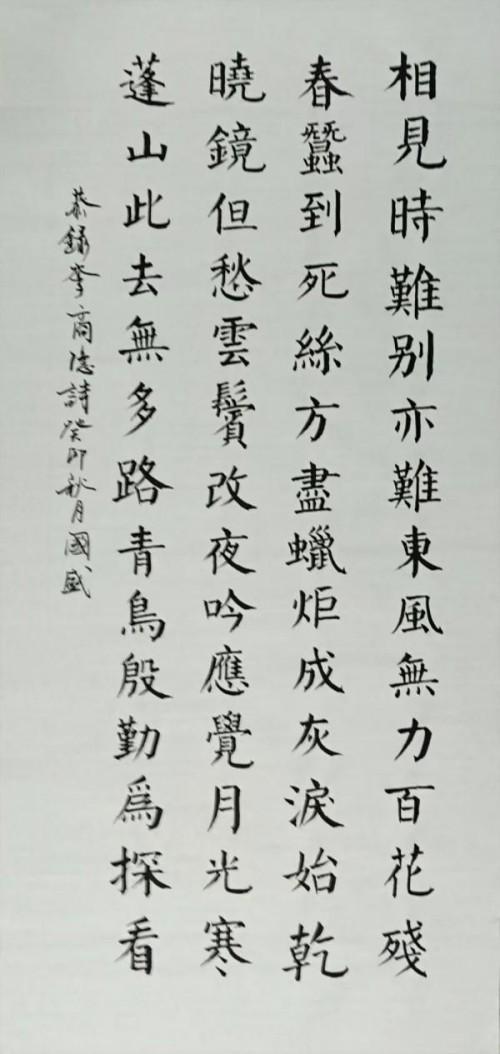 相見時難别亦難東風無力百花殘
春蠶到死絲方盡蠟炬成灰淚始乾
曉鏡但愁雲鬢改夜吟應覺月光寒
蓬山此去無多路青鳥殷勤爲探看
恭録李商隐詩癸卯秋月國盛